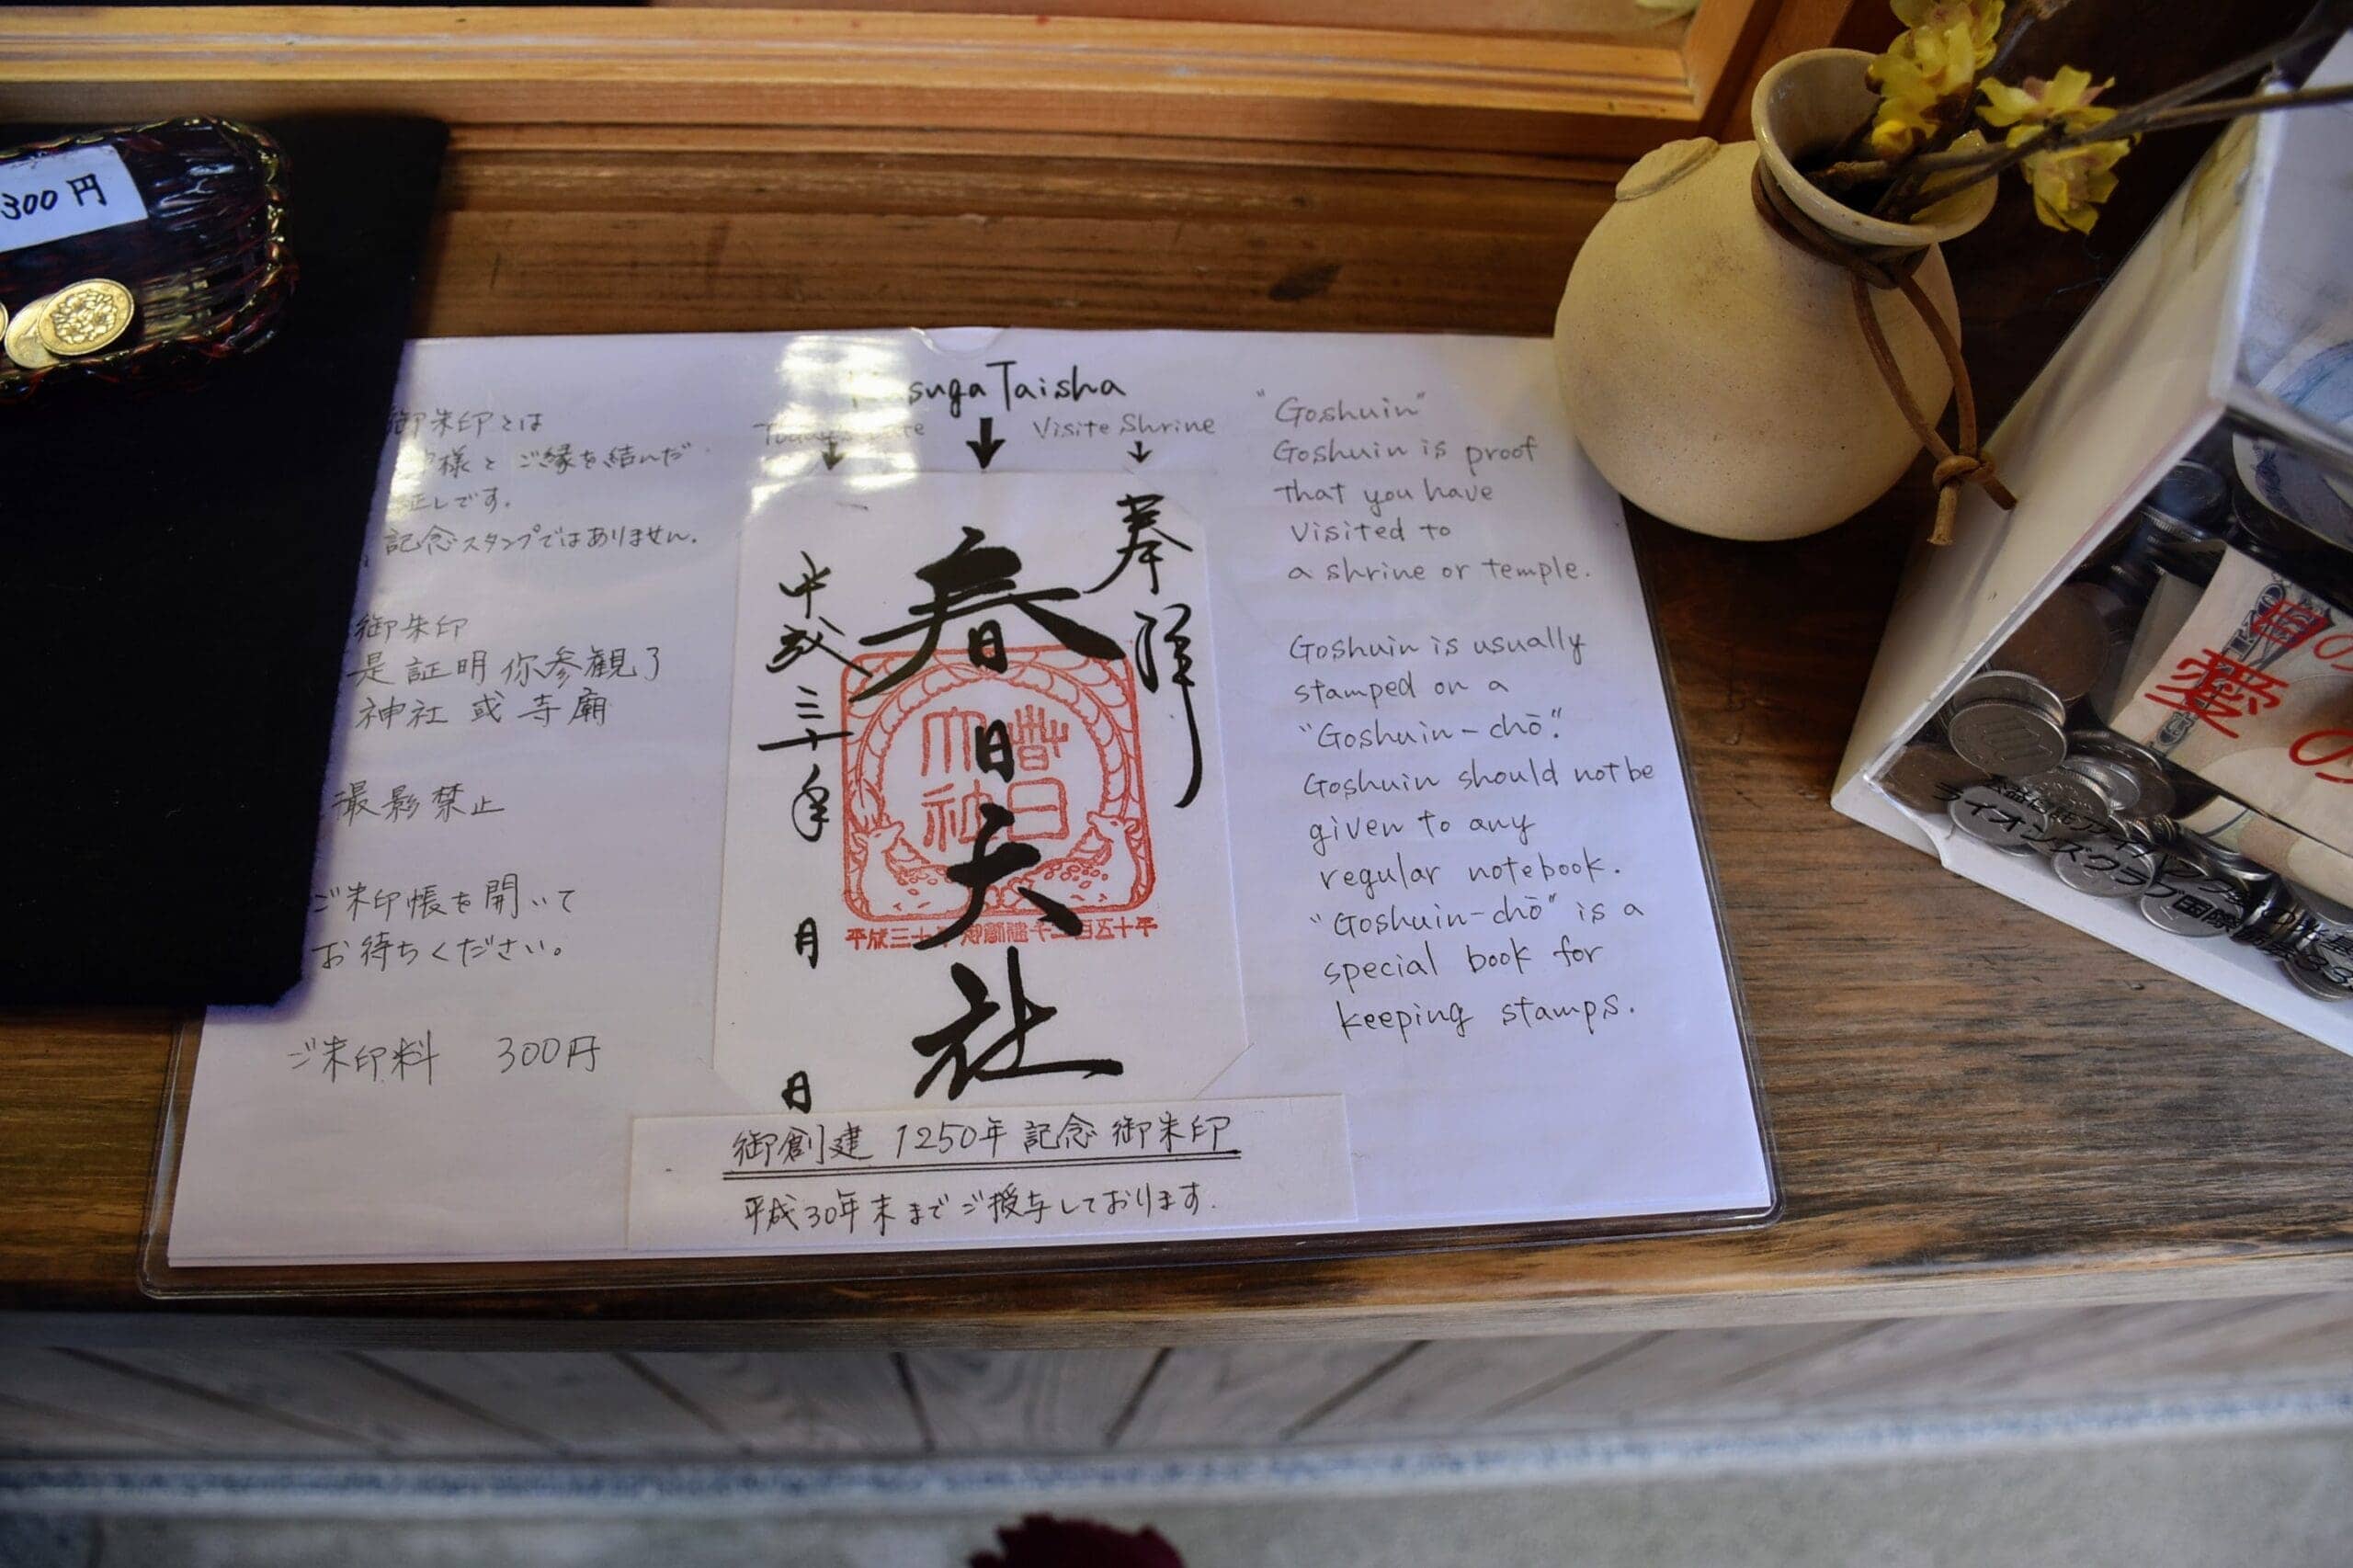 300円
御朱印とは
様と ご縁を結んだ
証しです。
記念スタンプではありません.
御朱印
是証明你参観了
神社 或 寺廟
撮影禁止
ご朱印帳を開いて
お待ちください。
ご朱印料 300円
suga Taisha
Today's Date
Visite Shrine
奉拝
春日大社
平成三十年 月 日
春日大社
平成三十年 御創建千二百五十年
御創建 1250年 記念 御朱印
平成30年末までご授与しております.
"Goshuin"
Goshuin is proof
that you have
visited to
a shrine or temple.
Goshuin is usually
stamped on a
"Goshuin-chō".
Goshuin should not be
given to any
regular notebook.
"Goshuin-chō" is a
special book for
keeping stamps.
愛の
ライオンズクラブ国際